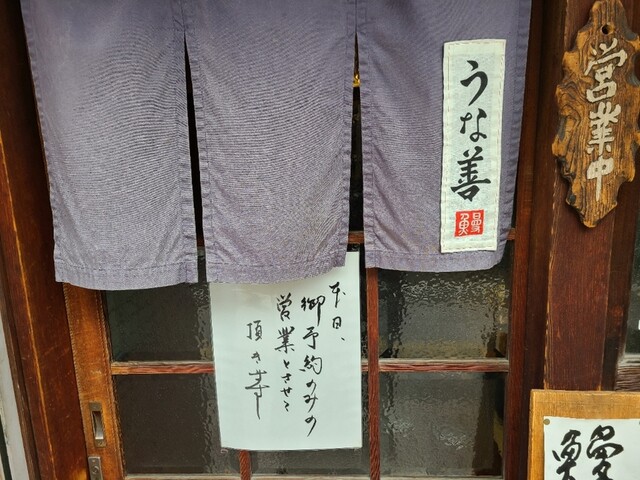 営業中
うな善
鰻
本日、
御予約のみの
営業とさせて
頂き〼
鰻